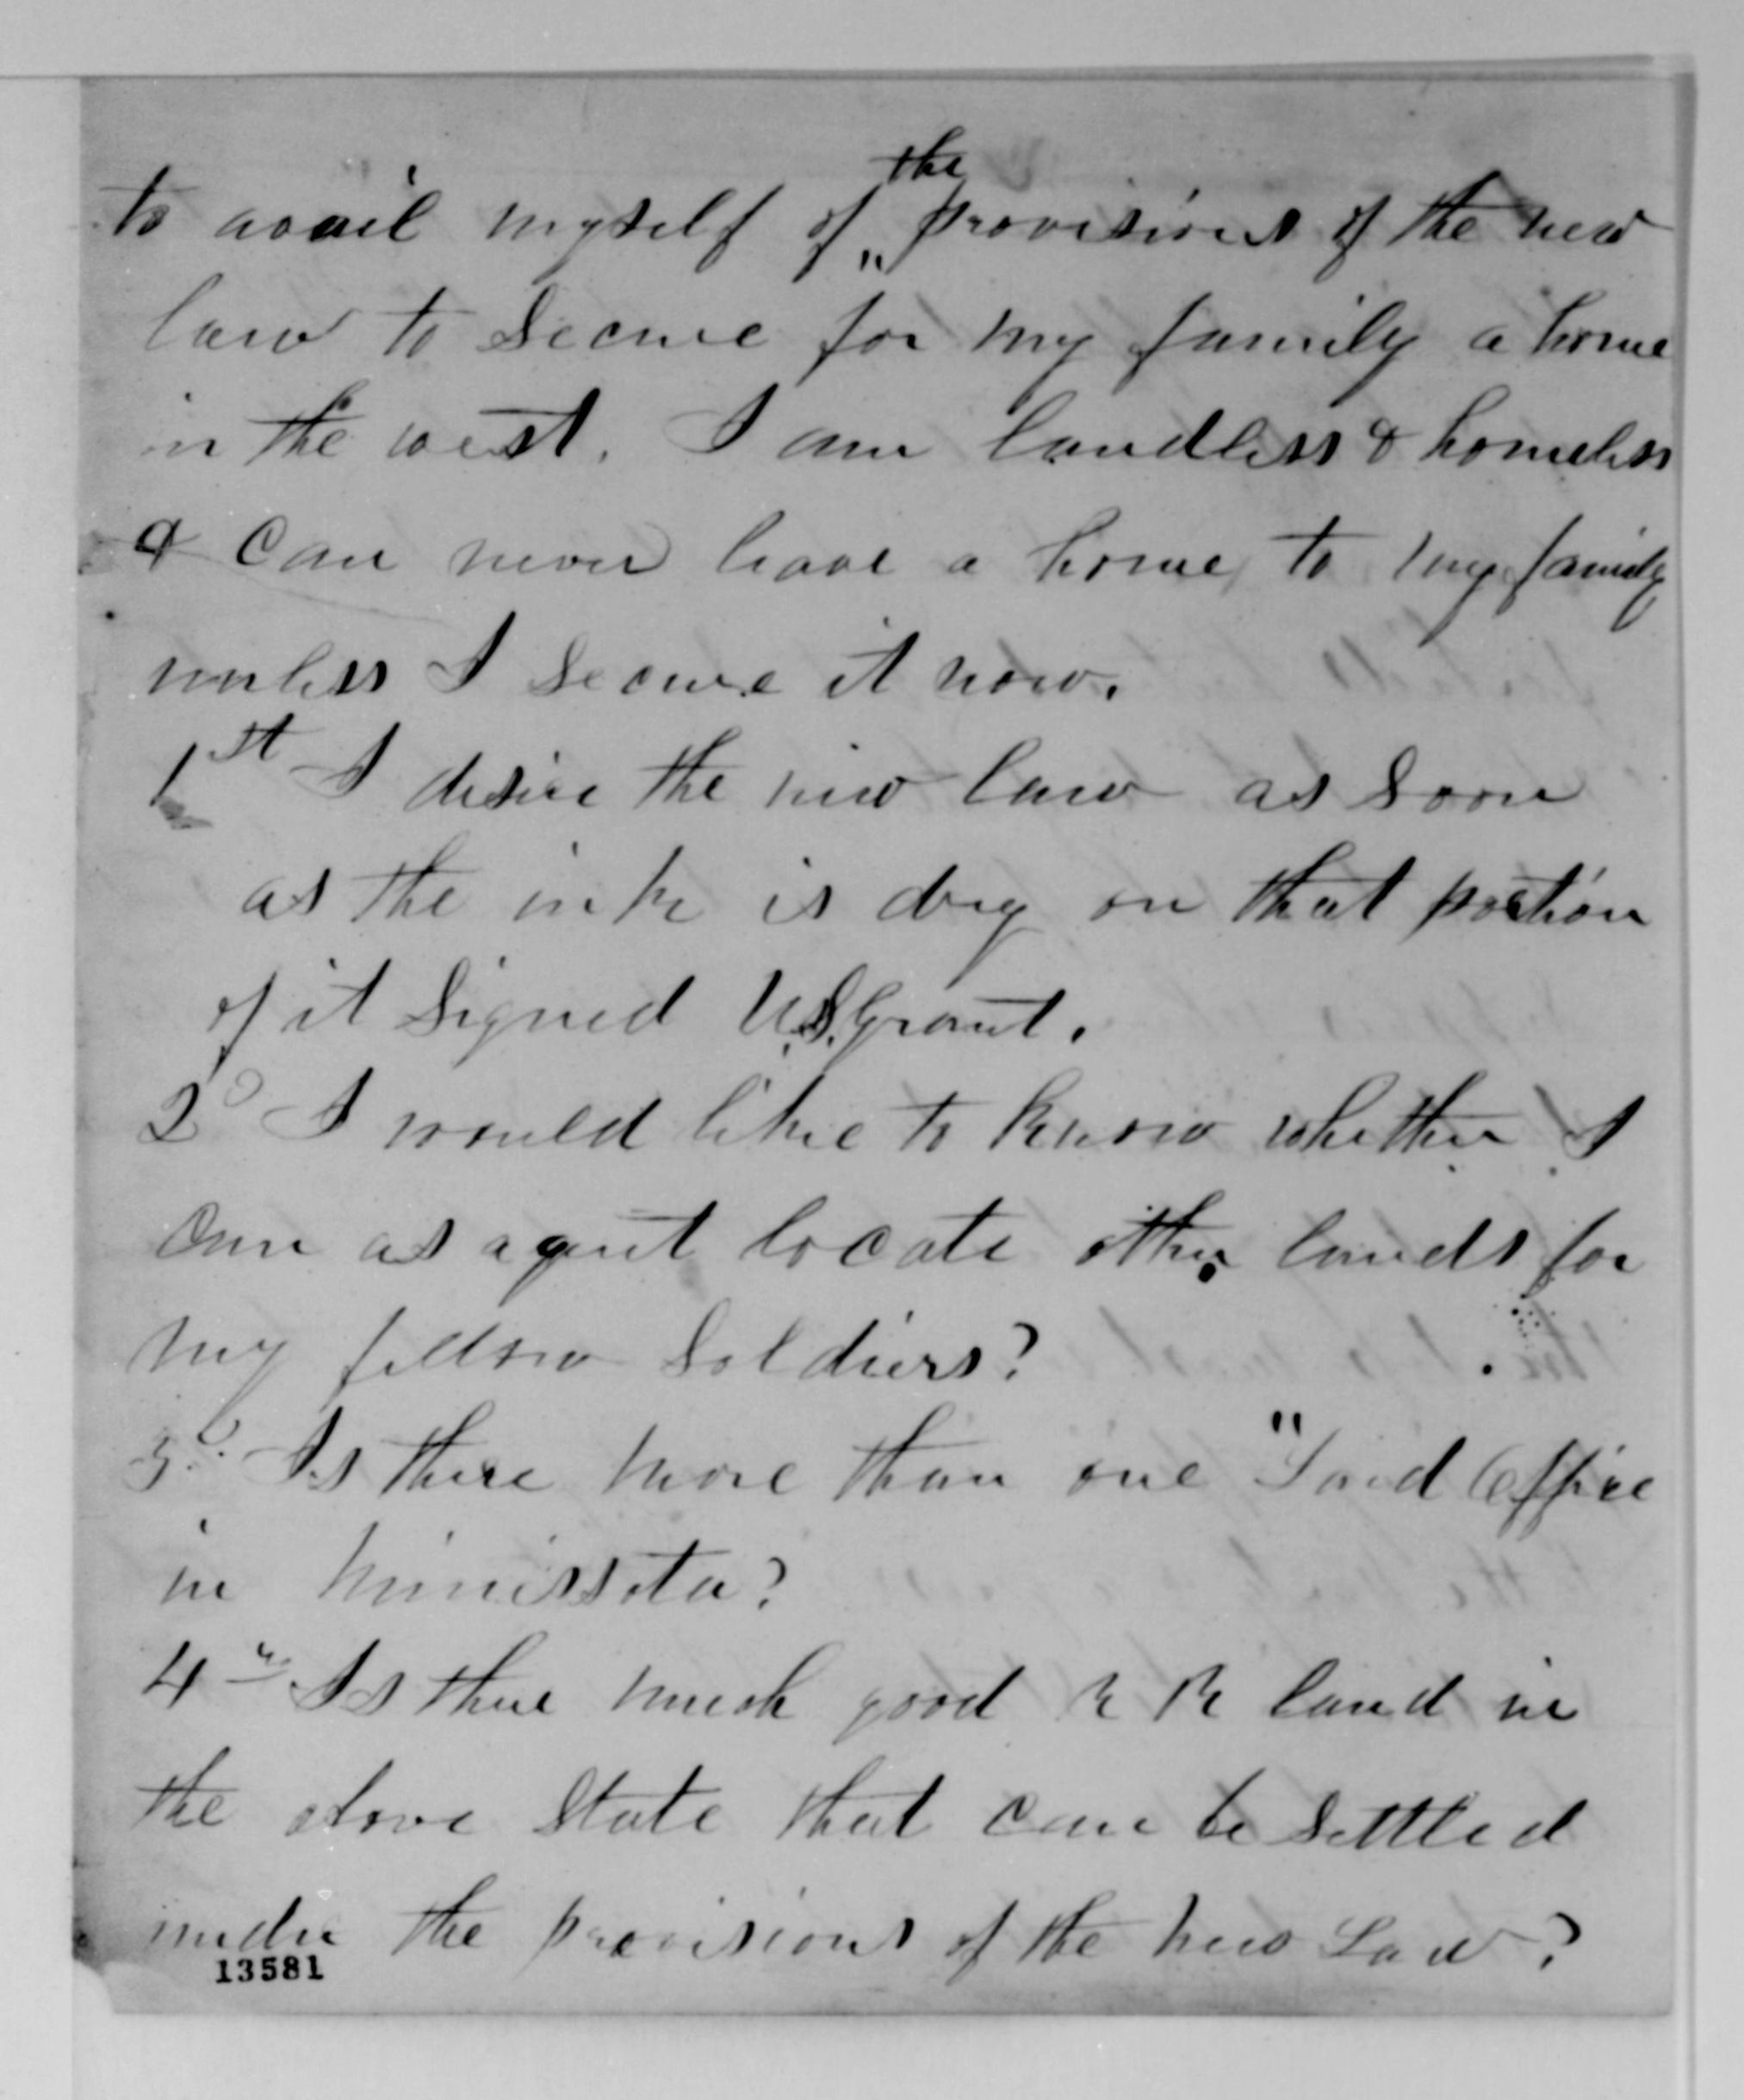 the
to avail myself of " provisions of the new
law to secure for my family a home
in the west. I am landless & homeless
& can never leave a home to my family
unless I secure it now.
1st I desire the new law as soon
as the ink is dry on that portion
of it signed U.S. Grant.
2d I would like to know whether I
can as agent locate other lands for
my fellow soldiers?
3d. Is there more than one "Land Office
in Minissota?
4th Is there much good R R land in
the above State that can be settled
under the provisions of the new Law?
13581